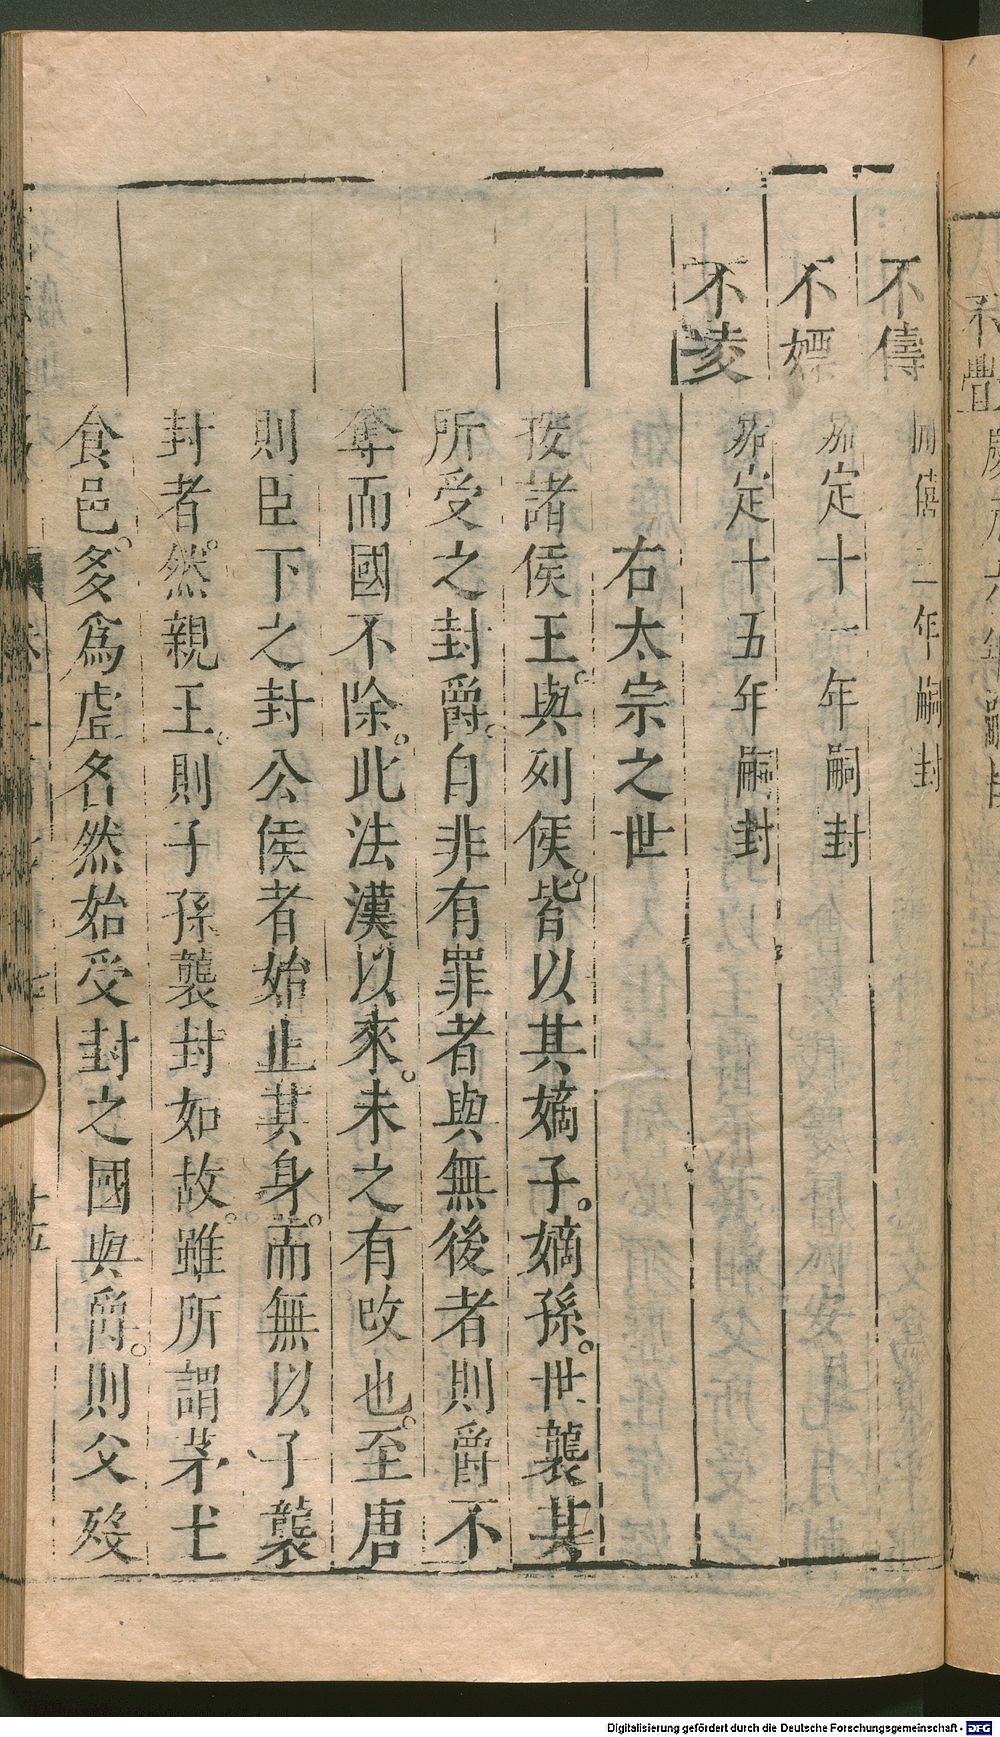 不儔 開禧二年嗣封
不嫖 嘉定十一年嗣封
不凌 嘉定十五年嗣封
右太宗之世
按諸侯王。與列侯。皆以其嫡子。嫡孫。世襲其
所受之封爵。自非有罪者與無後者則爵不
奪而國不除。此法漢以來。未之有改也。至唐
則臣下之封公侯者始止其身。而無以子襲
封者。然親王。則子孫襲封如故。雖所謂茅土
食邑。多爲虛名然始受封之國與爵。則父歿
十五
Digitalisierung gefördert durch die Deutsche Forschungsgemeinschaft - DFG